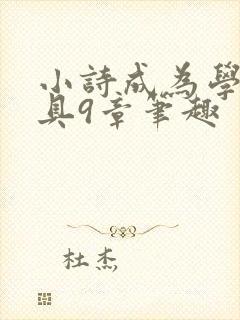 小詩成為學
具9章筆趣
杜杰